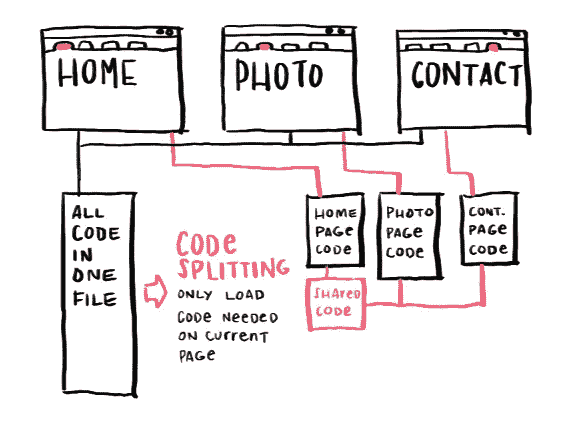 HOME
PHOTO
CONTACT
ALL
CODE
IN
ONE
FILE
CODE
SPLITTING
ONLY LOAD
CODE NEEDED
ON CURRENT
PAGE
HOME
PAGE
CODE
PHOTO
PAGE
CODE
CONT.
PAGE
CODE
SHARED
CODE